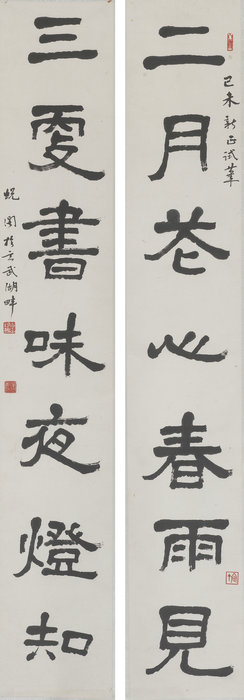 二月花心春雨見
己未新正試筆
三更書味夜燈知
於玄武湖畔